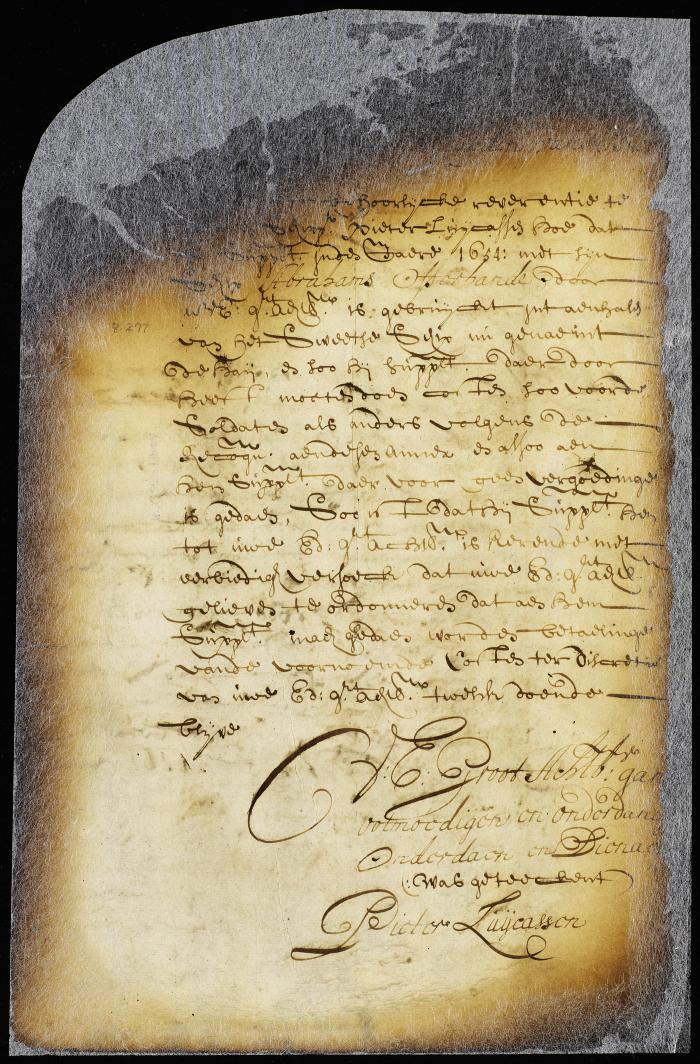 behoorlycke reverentie te
Schipr. Pieter Luycassen hoe dat
Supplt. inden Jaere 1654: met syn
Schip Abrahams Offerhande door
uwE: grt. achtb. is gebruyckt int aenhalen
van het Sweetse Schip nu genaemt
de Haij, en soo hij Supplt. daer door
heeft moeten doen costen soo voor de
Soldaten als anders volgens de
Requ: aen desen annex en alsoo aen
hem Supplt. daer voor geen vergoedinge
is gedaen, Soo ist dat hij Supplt. hem
tot uwe Ed: grt. achtb. is kerende met
eerbiedich versoeck dat uwe Ed: grt. achtb.
gelieven te ordonneren dat aen hem
Supplt. mach gedaen worden betaelinge
vande voornoemde Costen ter discretie
van uwe Ed: grt. achtb. twelck doende
blyve
UE. Groot Achtb:
ootmoedigen en onderdan
Onderdaen en Dienaer
(: Was geteeckent
Pieter Luijcassen
8.277